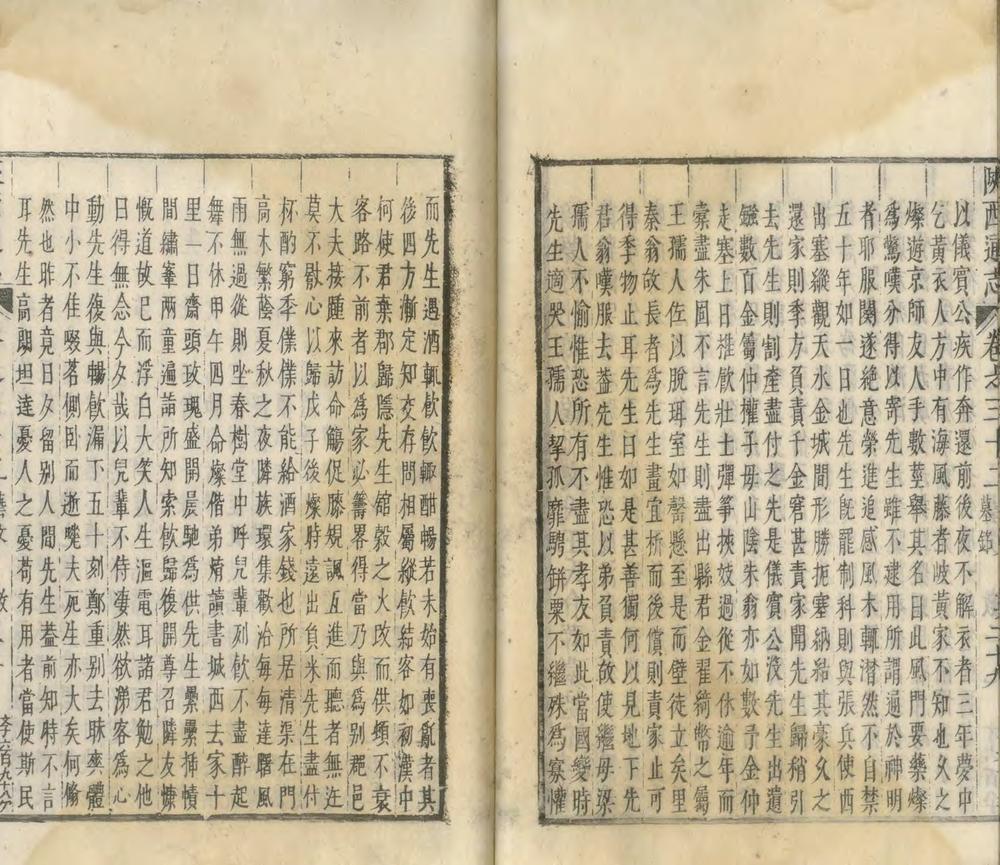 陝西通志 卷之三十二 墓銘
以儀賓公疾作奔還前後夜不解衣者三年夢中
乞黃衣人方中有海風藤者岐黃家不知也久之
燦遊京師友人手數莖舉其名曰此風門要藥燦
為驚嘆分得以寄先生雖不逮用所謂通於神明
者耶服闋遂絕意榮進追感風木輒潸然不自禁
五十年如一日也先生旣罷制科則與張兵使西
出塞縱觀天水金城間形勝扼塞納結其豪久之
還家則季方負責千金窘甚責家聞先生歸稍引
去先生則割產盡付之先是儀賓公沒先生出遺
鏹數百金屬仲權子母山陰朱翁亦如數予金仲
走塞上日推飲壯士彈箏挾妓過從不休逾年而
橐盡朱固不言先生則盡出縣君金翟綺幣之屬
王孺人佐以脫珥室如罄懸至是而壁徒立矣里
秦翁故長者為先生畫宜析而後償則責家止可
得季物止耳先生曰如是甚善獨何以見地下先
君翁嘆服去葢先生惟恐以弟負責故使繼母梁
孺人不愉惟恐所有不盡其孝友如此當國變時
先生適哭王孺人挈孤靡騁缾粟不繼殊為寡懽
而先生遇酒輒飲飲輒酣暢若未始有喪亂者其
後四方漸定知交存問相屬縱飲結客如初漢中
何使君棄郡歸隱先生館穀之火改而供頓不衰
客路不前者以為家必籌畧得當乃與為別郡邑
大夫接踵來訪命觴促膝規諷互進而聽者無迕
莫不敭心以歸戊子後燦時遠出負米先生盡付
杯酌窮季僕僕不能給酒家錢也所居清渠在門
高木繁蔭夏秋之夜隣族環集歡冶每每達曙風
雨無過從則坐春樹堂中呼兒輩列飲不盡醉起
舞不休甲午四月命燦偕弟焴讀書城西去家十
里一日齋頭玫瑰盛開晨馳為供先生纍纍揷幘
間繡輋兩童遍詣所知索飲歸復開尊召隣友慷
慨道故已而浮白大笑人生漚電耳諸君勉之他
日得無念今夕哉以兒輩不侍凄然欲涕客為心
動先生復與暢飲漏下五十刻鄭重別去昧爽體
中小不佳啜茗側卧而逝嗟夫死生亦大矣何翛
然也昨者竟日夕留別人間先生葢前知時不言
耳先生高朗坦達憂人之憂苟有用者當使斯民